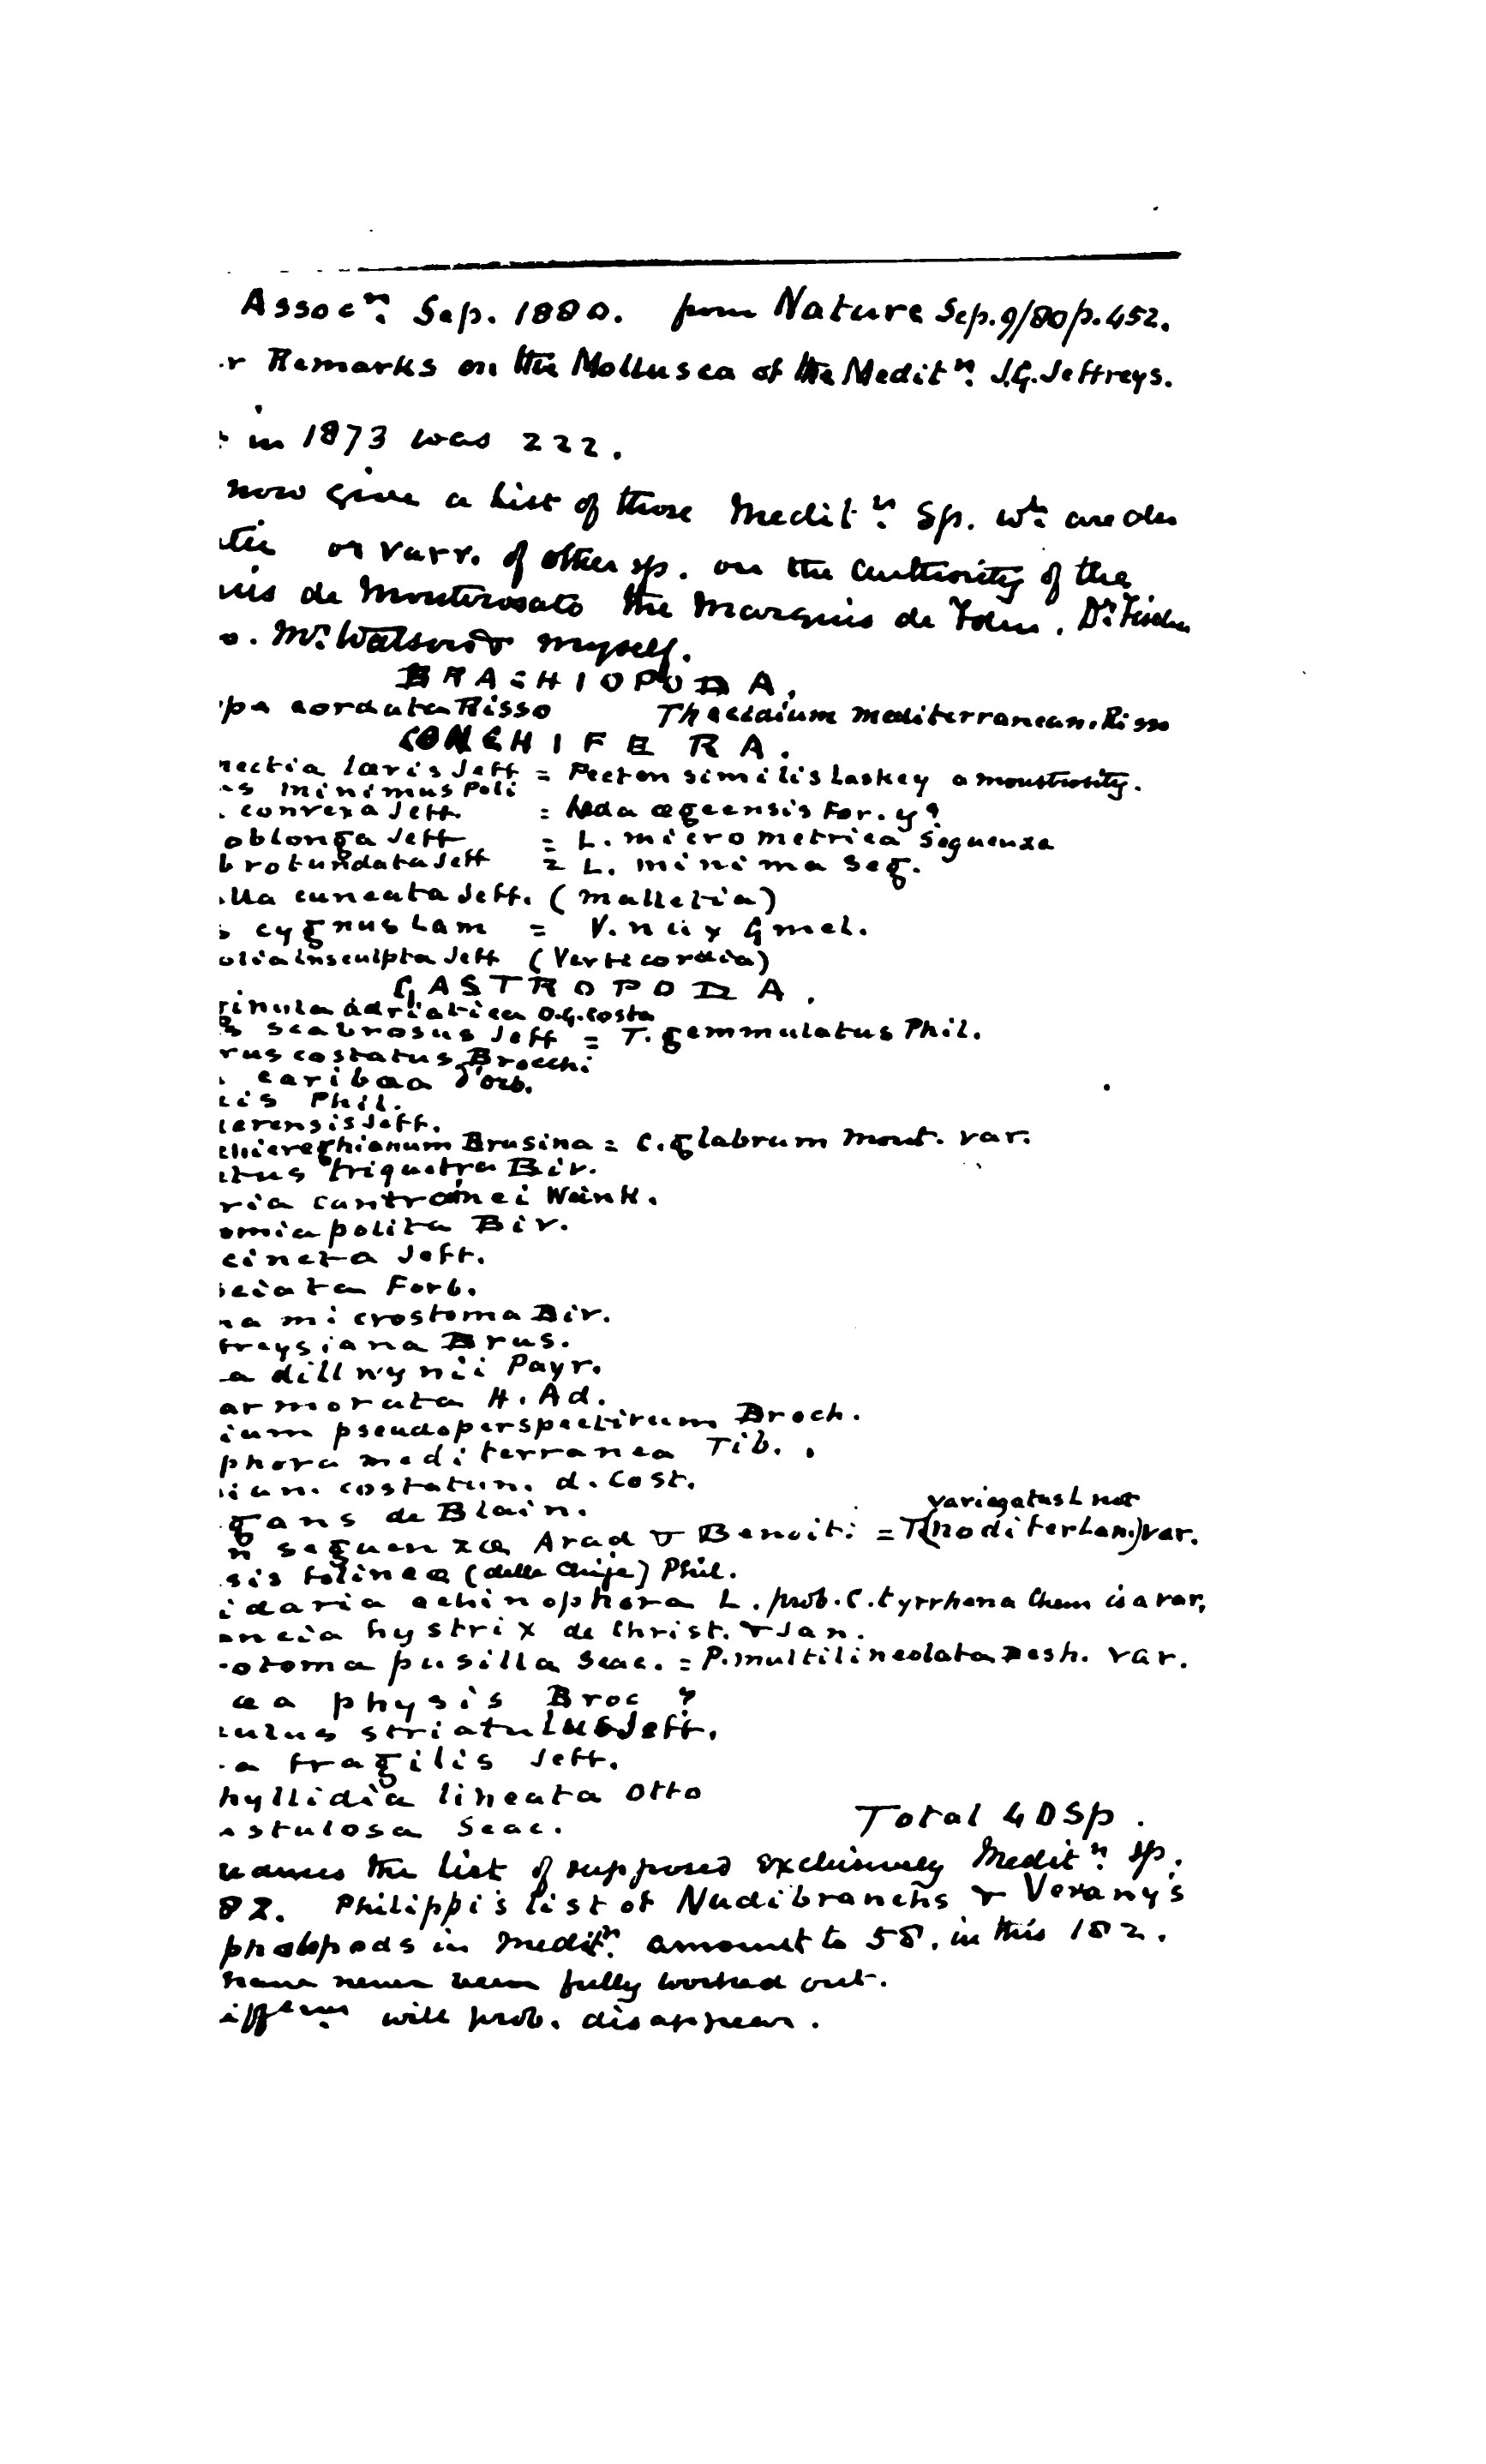 Assocⁿ. Sep. 1880. from Nature Sep. 9/80 p. 452.
r Remarks on the Mollusca of the Meditⁿ. J.G. Jeffreys.
in 1873 was 222.
now give a list of those Meditⁿ. Sp. wh. are also
tic or varr. of other sp. on the authority of the
uis de Monterosato the Marquis de Folin. Dr. Fischer
o. Mr. Watson & myself.
BRACHIOPODA.
pa cordata Risso Thecidium mediterranean. Risso
CONCHIFERA.
nectia lævis Jeff = Pecten similis Laskey a monstrosity.
s minimus Poli
convexa Jeff. = Leda ægeensis For. y?
oblonga Jeff = L. micrometrica Seguenza
brotundata Jeff = L. minima Seg.
lla cuneata Jeff. (Malletia)
s cygnus Lam = V. nux Gmel.
olia insculpta Jeff (Verticordia)
GASTROPODA.
rinula adriatica O.G. Costa
s scabrosus Jeff = T. gemmulatus Phil.
rus costatus Brocchi
caribæa d'orb.
lis Phil.
lerensis Jeff.
chiereghianum Brusina = C. glabrum Mont. var.
tus triquetra Biv.
ria cantrainei Weink.
omia polita Biv.
cincta Jeff.
sciata Forb.
na microstoma Biv.
freysiana Brus.
a dillwynii Payr.
armorata H. Ad.
ium pseudoperspectivum Broch.
phora mediterranea Tib.
ium. costatum. d. Cost.
gans de Blain. variegatus L not
n seguenzæ Arad & Benoit: = T (noditer Lam.) var.
sis tolinea (delle Chije) Phil.
idaria echinophora L. prob. C. tyrrhena Chem is a var,
ancia hystrix de Christ. & Jan.
otoma pusilla Scac. = P. multilineolata Desh. var.
æa physis Broc ?
ulus striatulus Jeff.
a fragilis Jeff.
hyllidia lineata Otto
stulosa Scac. Total 40 Sp.
uances the list of supposed exclusively Meditⁿ. sp.
82. Philippi's list of Nudibranchs & Verany's
phalopods in Meditⁿ. amount to 58. in this 182.
have never been fully worked out.
iffᵉⁿᶜᵉ. will prob. disappear.